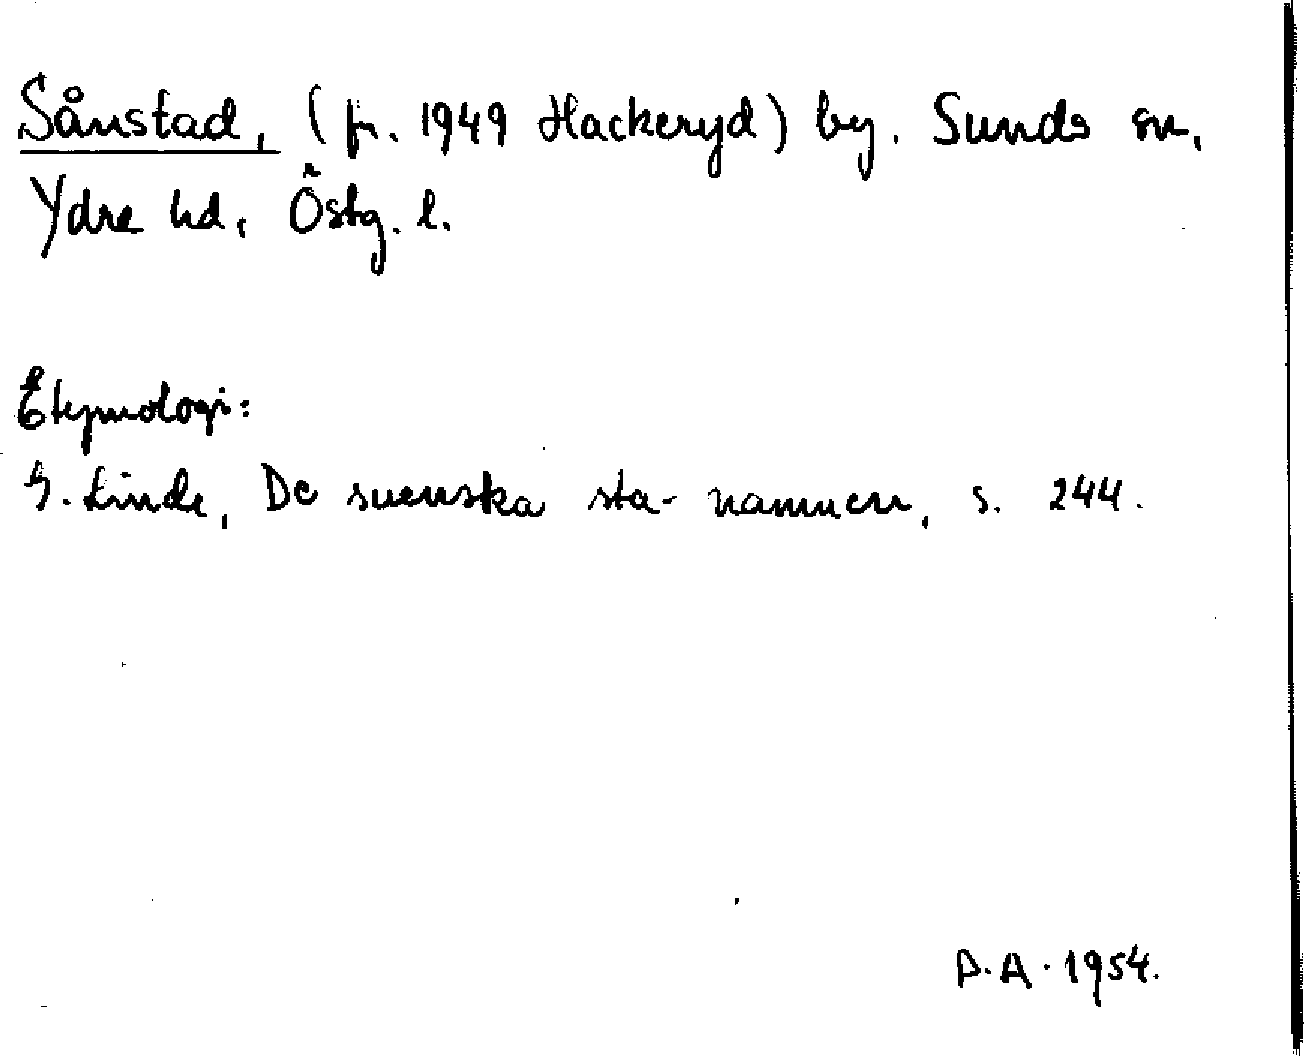 Sånstad, (fr. 1949 Hackeryd) by. Sunds sn,
Ydre hd, Östg. l.
Etymologi:
G. Linde, De svenska sta-namnen, s. 244.
A.A. 1954.